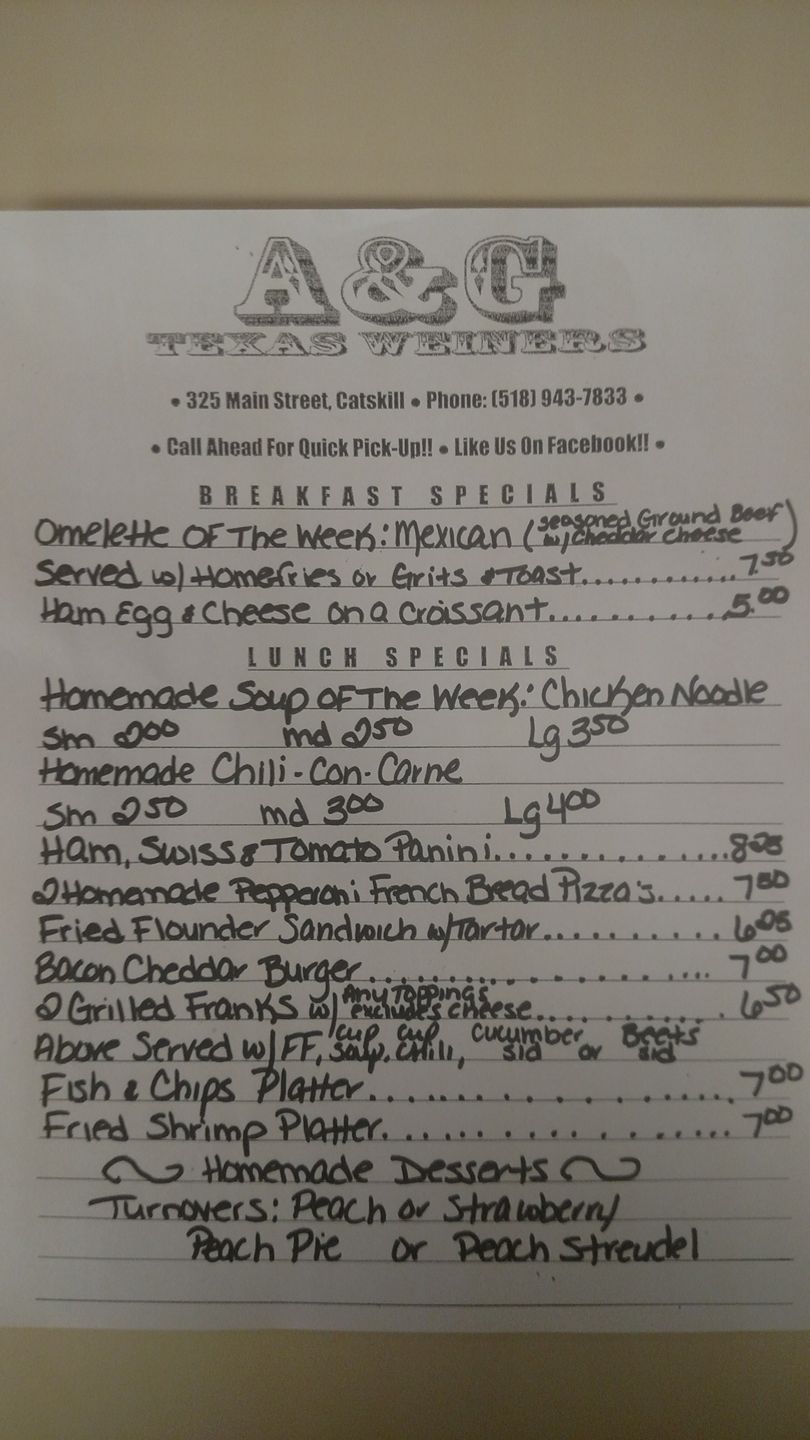 A&G
TEXAS WEINERS
• 325 Main Street, Catskill • Phone: (518) 943-7833 •
• Call Ahead For Quick Pick-Up!! • Like Us On Facebook!! •
BREAKFAST SPECIALS
Omelette OF The Week: Mexican (seasoned Ground Beef w/ cheddar cheese)
Served w/ Homefries or Grits & Toast............7.50
Ham Egg & Cheese on a Croissant...........5.00
LUNCH SPECIALS
Homemade Soup OF The Week: Chicken Noodle
Sm 2.00 md 2.50 Lg 3.50
Homemade Chili-Con-Carne
Sm 2.50 md 3.00 Lg 4.00
Ham, Swiss & Tomato Panini...............
2 Homemade Pepperoni French Bread Pizza's.....
Fried Flounder Sandwich w/Tartar..........
Bacon Cheddar Burger................... 7.00
2 Grilled Franks w/ Any Toppings excludes cheese........... 6.50
Above Served w/ FF, cup soup, cup chili, cucumber sld or Beets sld
Fish & Chips Platter......................7.00
Fried Shrimp Platter....................7.00
~ Homemade Desserts ~
Turnovers: Peach or Strawberry
Peach Pie or Peach Streudel